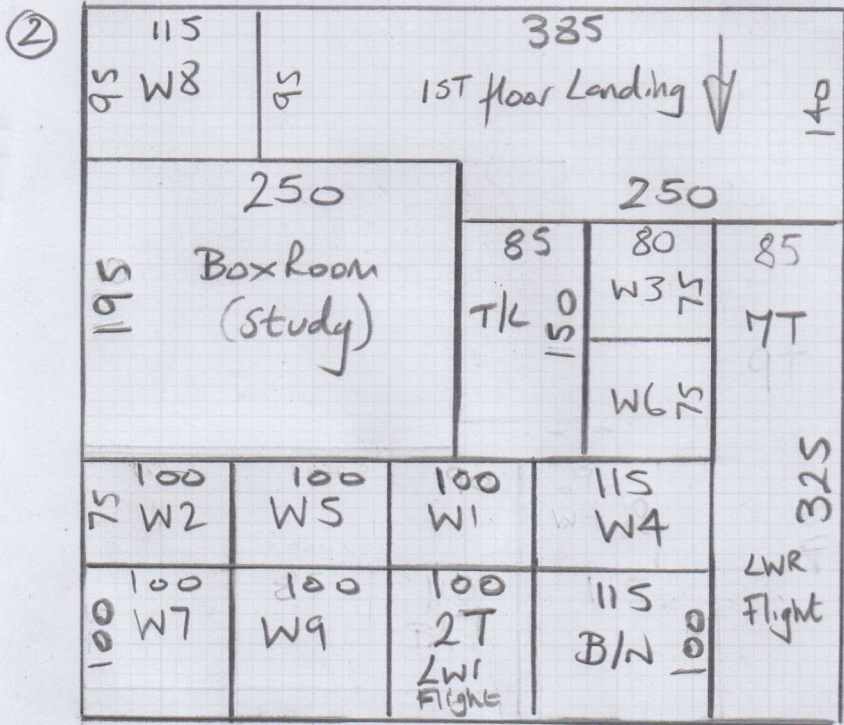 ②
115
W8
95
95
385
1ST floor Landing
140
250
Box Room
(study)
195
250
85
T/L
150
80
W3
75
W6
75
85
7T
325
LWR
Flight
75
100
W2
100
W5
100
W1
115
W4
100
100
W7
100
W9
100
2T
LWR
Flight
115
B/N
100